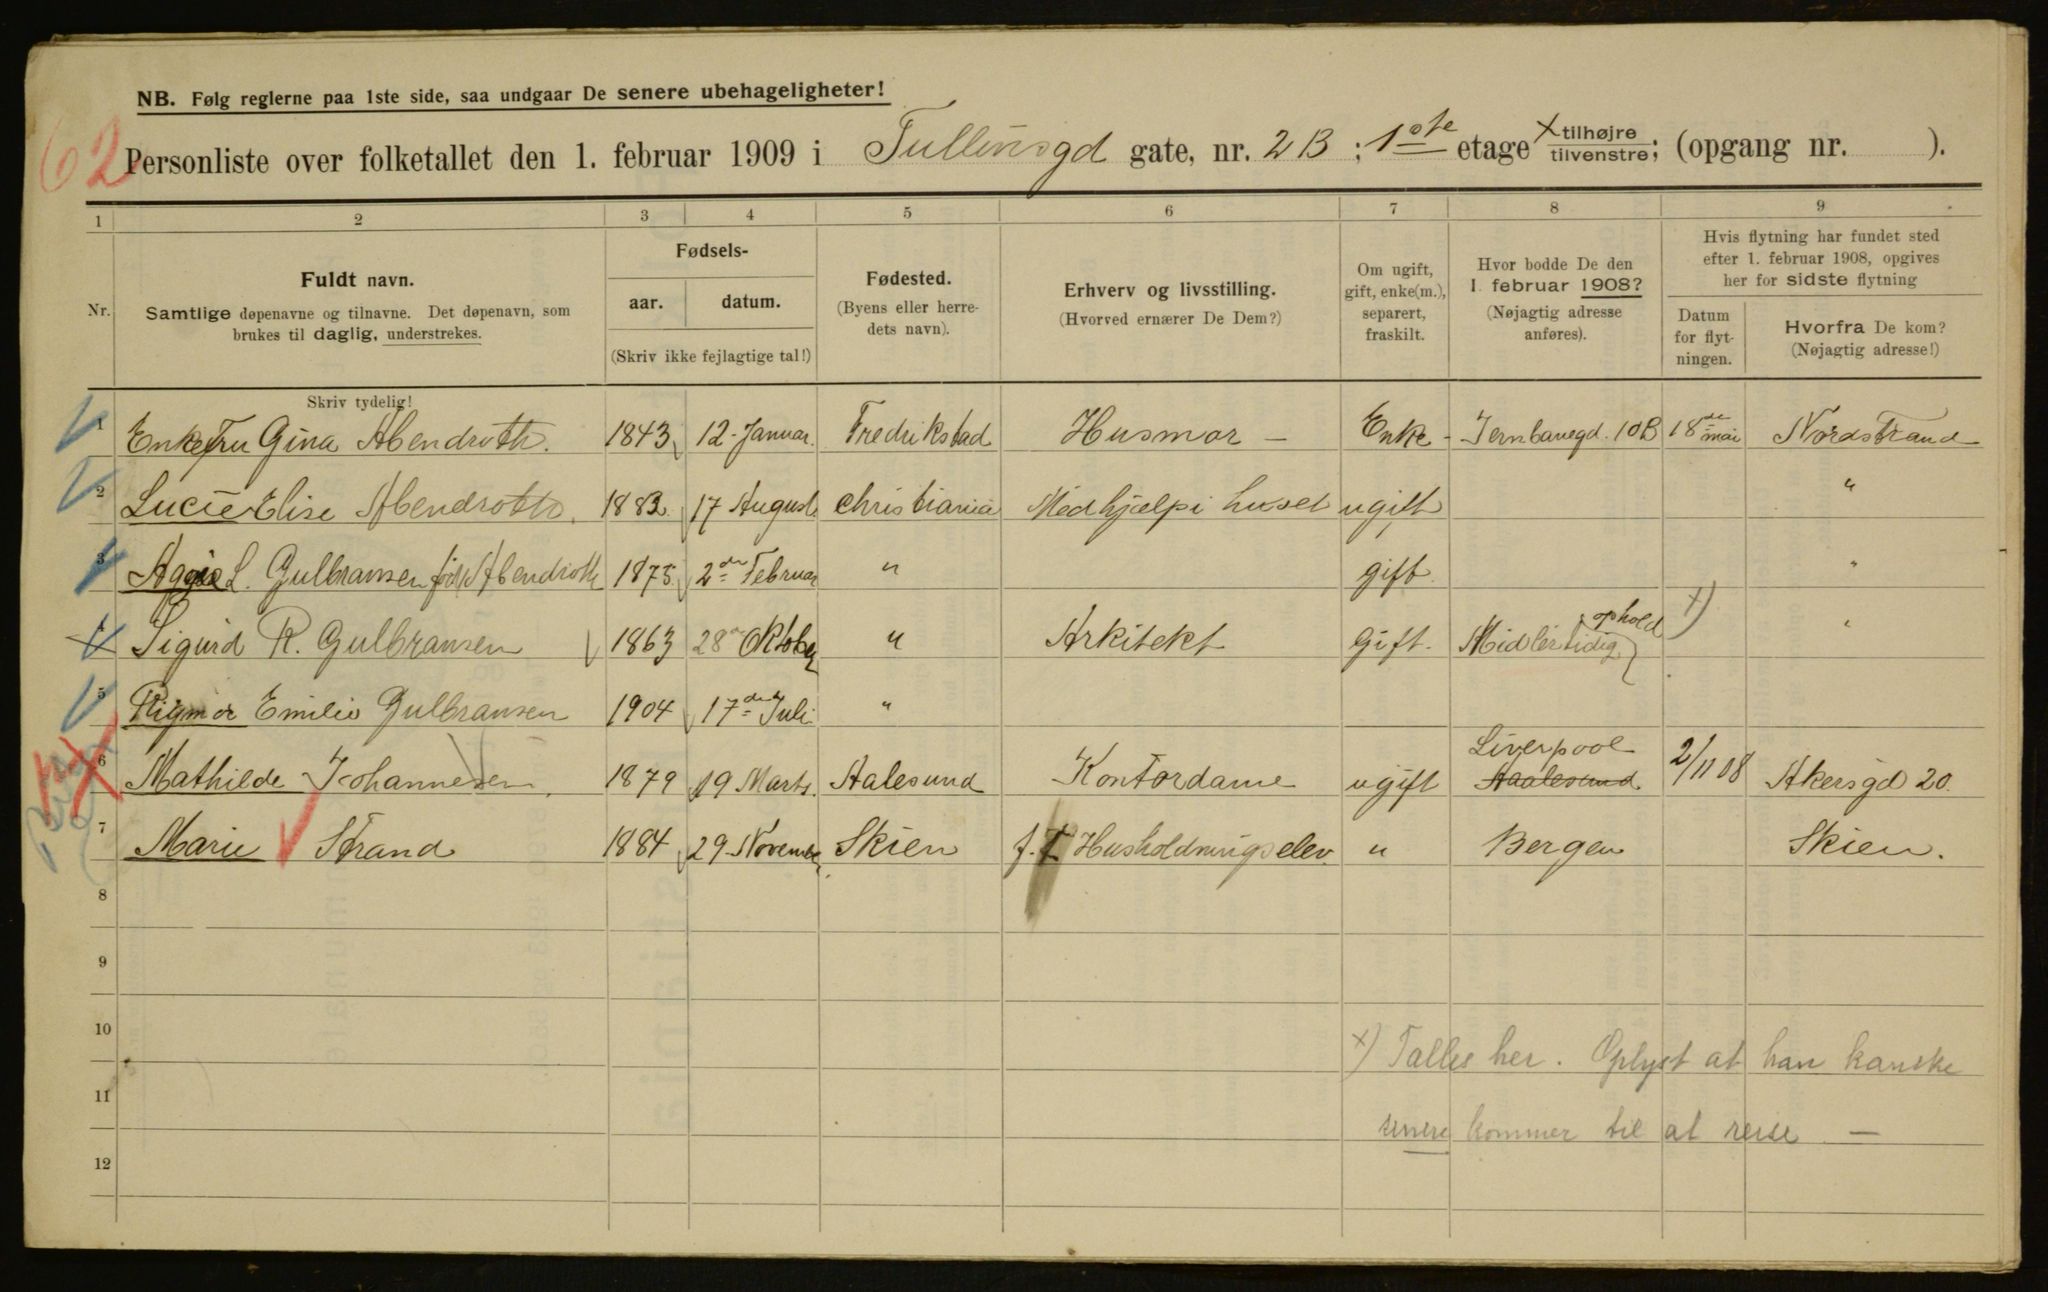 NB. Følg reglerne paa 1ste side, saa undgaar De senere ubehageligheter!
62
Personliste over folketallet den 1. februar 1909 i Tullinsgd gate, nr. 2B ; 1ste etage x tilhøjre / tilvenstre; (opgang nr. ).
1 2 3 4 5 6 7 8 9
Nr.
Fuldt navn.
Samtlige døpenavne og tilnavne. Det døpenavn, som
brukes til daglig, understrekes.
Fødsels-
aar. datum.
(Skriv ikke fejlagtige tal!)
Fødested.
(Byens eller herre-
dets navn).
Erhverv og livsstilling.
(Hvorved ernærer De Dem?)
Om ugift,
gift, enke(m.),
separert,
fraskilt.
Hvor bodde De den
1. februar 1908?
(Nøjagtig adresse
anføres).
Hvis flytning har fundet sted
efter 1. februar 1908, opgives
her for sidste flytning
Datum
for flyt-
ningen.
Hvorfra De kom?
(Nøjagtig adresse!)
Skriv tydelig!
1 Enkefru Gina Abendroth. 1843 12-Januar. Fredrikstad Husmor - Enke - Jernbanegd. 10B 18de mai Nordstrand
2 Lucie Elise Abendroth. 1883. 17 August Christiania Medhjælp i huset ugift "
3 L. Gulbransen født Abendroth 1875. 2den Februar " gift. "
4 Sigurd R. Gulbransen 1863 28de Oktober " Arkitekt Gift. Midlertidig ophold x) "
5 Rigmor Emilie Gulbransen 1904 17de Juli "
6 Mathilde Johannesen. 1879 19 Marts. Aalesund Kontordame ugift Liverpool Aaalesund 2/11 08 Akersgd 20.
7 Marie Strand 1884 29 November Skien f. T Husholdningselev. " Bergen Skien.
8
9
10
x) Tælles her. Oplyst at han kanske
11
senere kommer til at reise —
12